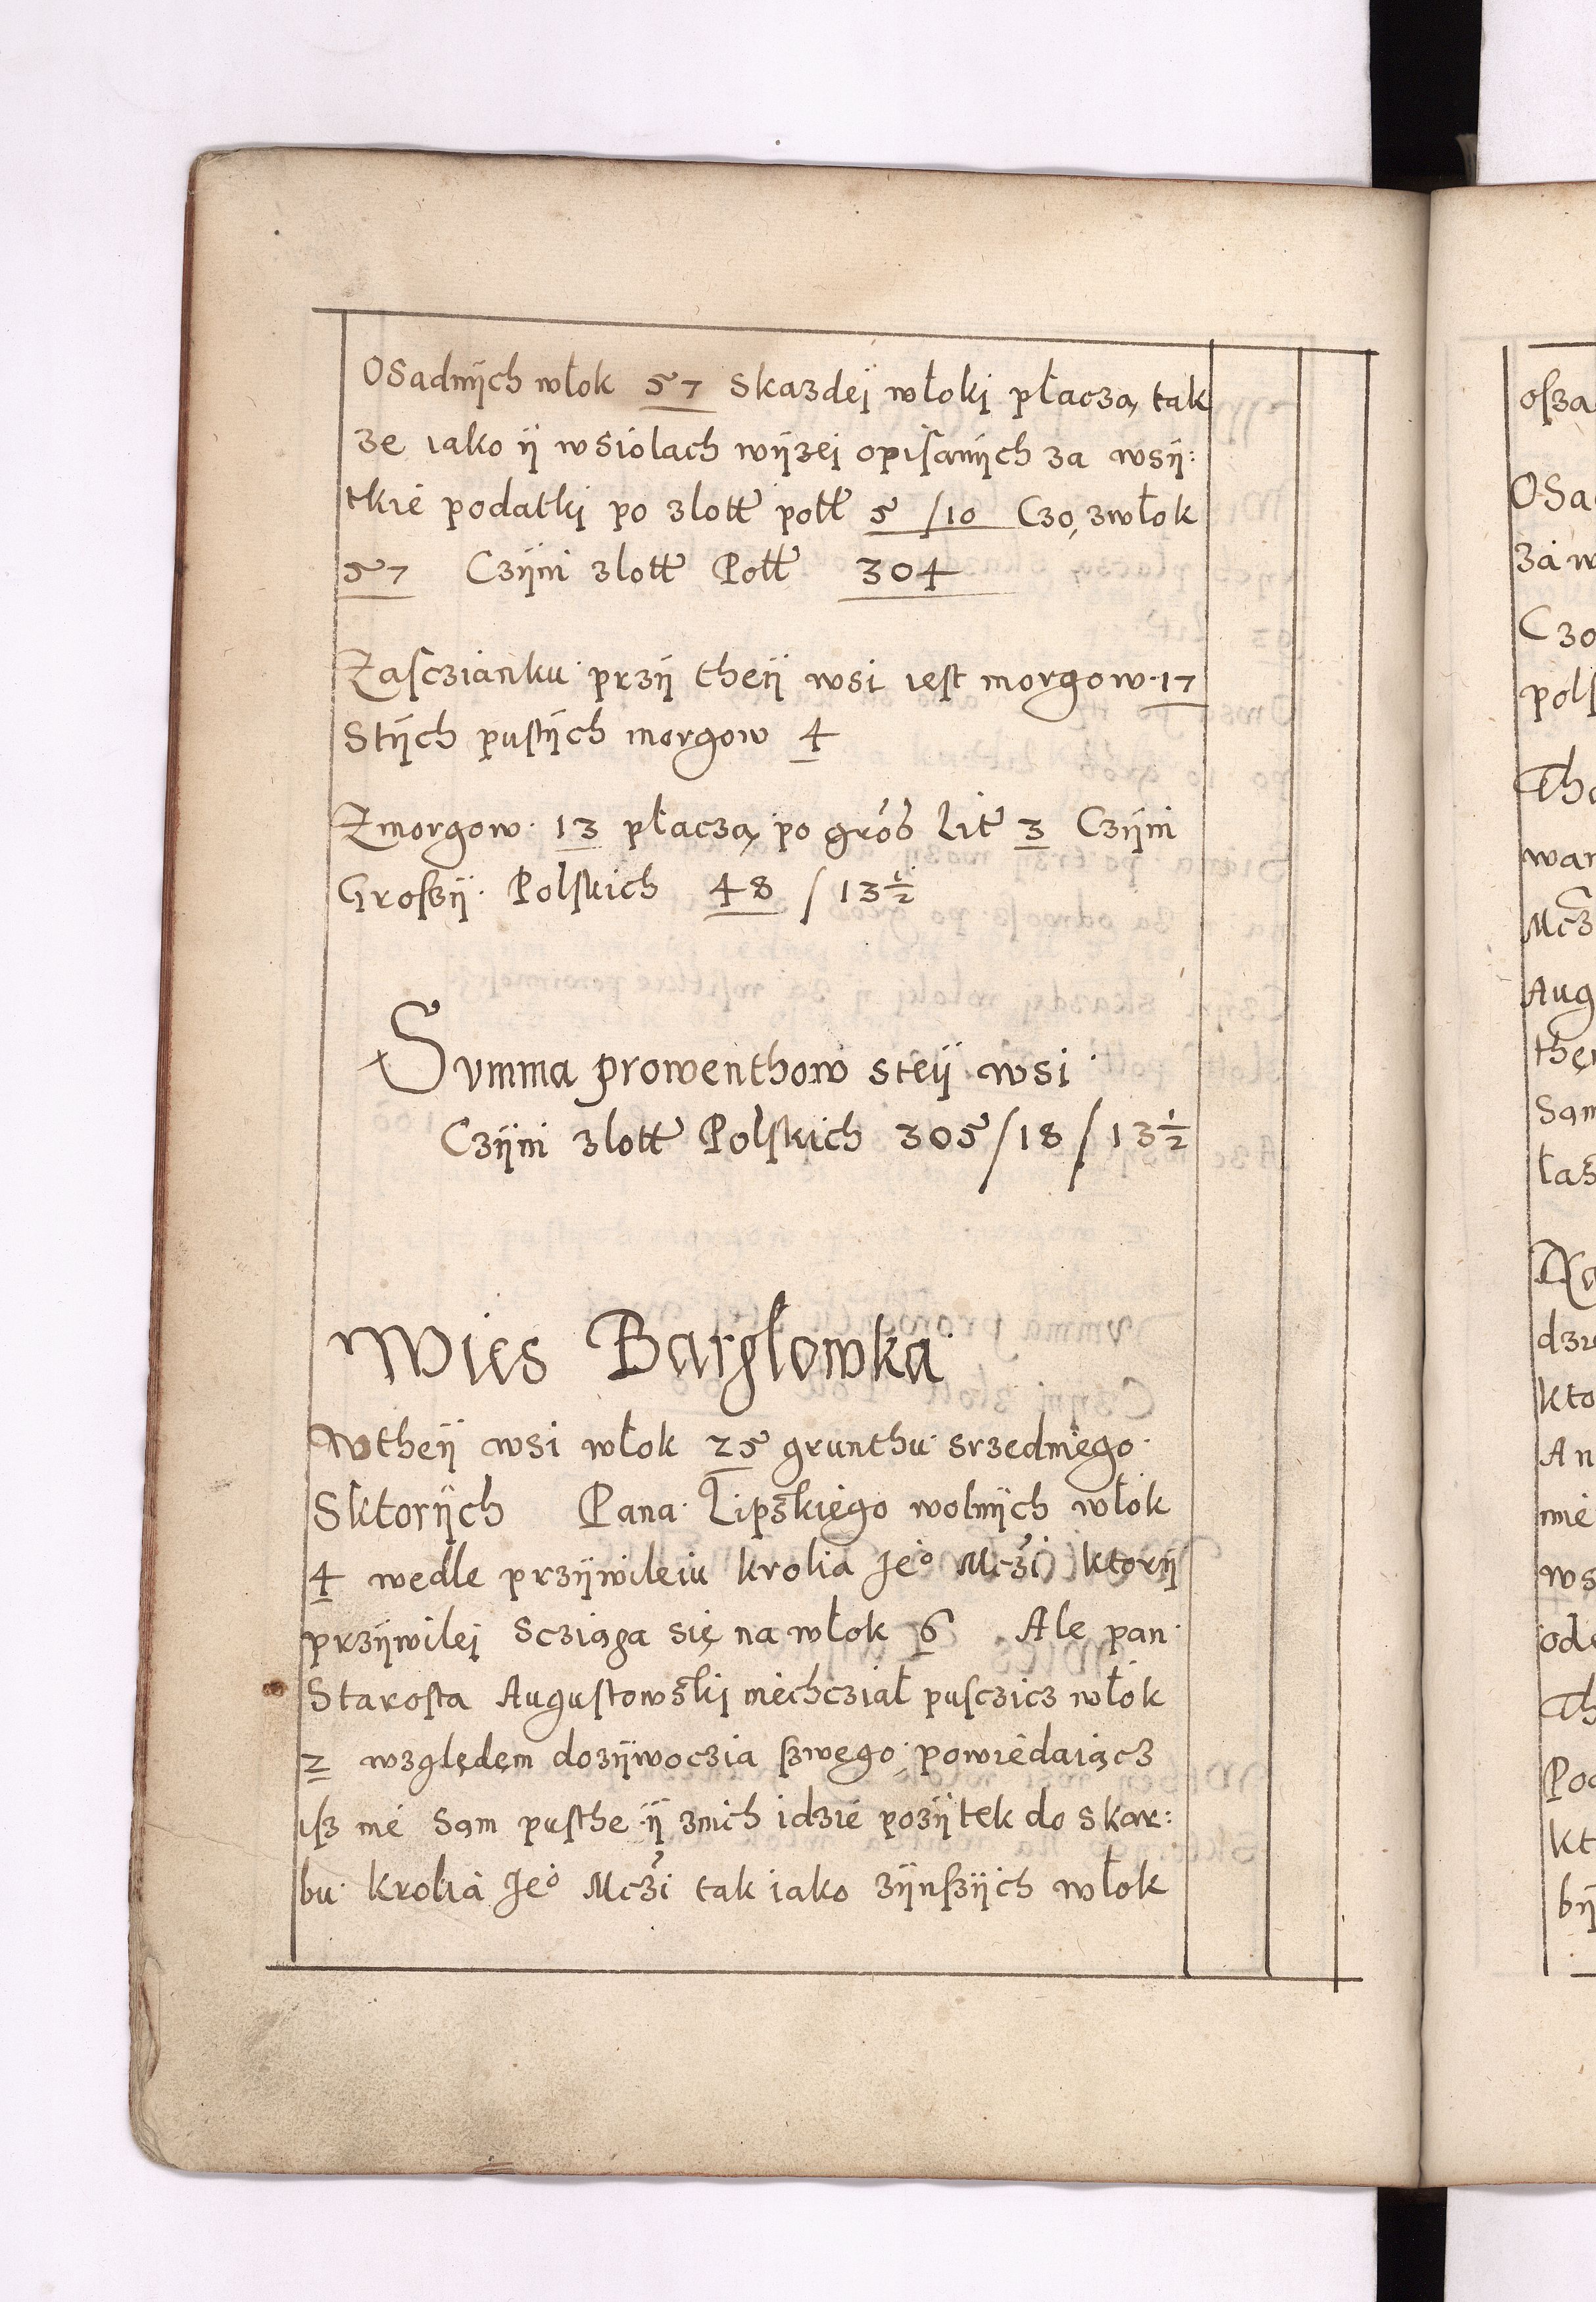 Osadnÿch włok 57 Skazdeÿ włokj płaczą tak
ze iako ÿ wsiolach wÿzei opiſanÿch za wsÿ:
tkie podatkj po zlott poll 5 / 10 Czo zwłok
57 Czÿni zlott Poll 304
Zaſczianku przÿ theÿ wsi iest morgow 17
Stÿch pustÿch morgow 4
Zmorgow 13 płaczą po grosz Lit 3 Czÿni
Groſzÿ Polſkich 48 / 13 1/2
Summa prowenthow steÿ wsi
Czÿni zlott Polſkich 305 / 18 / 13 1/2
Wies Bargłowka
Wtheÿ wsi włok 25 grunthu srzedniego
Sktorÿch Pana Lipskiego wolnÿch włok
4 wedle przÿwileiu krolia Jeo Mczi ktorÿ
przÿwilej Scziąga się na włok 6 Ale pan
Starosta Augustowskj niechcział puſczicz włok
2 względem dozÿwoczia ſzwego powiedaiącz
iſz nie Sąm pusthe ÿ znich idzie pozÿtek do skar:
bu krolia Jeo Mczi tak iako zÿnſzÿch włok
oſza
OSa
za w
Czo
polſ
Tho
wan
Mcz
Aug
then
Sąm
łas
dzi
kto
An
nie
ws
ode
Th
Pod
kt
bÿ